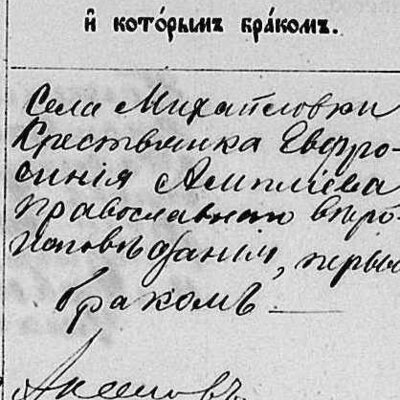 и҆ кото́рымъ бра́комъ.
Села Михайловки
Крестьянка Евфро-
синія
православнаго вѣро-
исповѣданія, первы
бракомъ